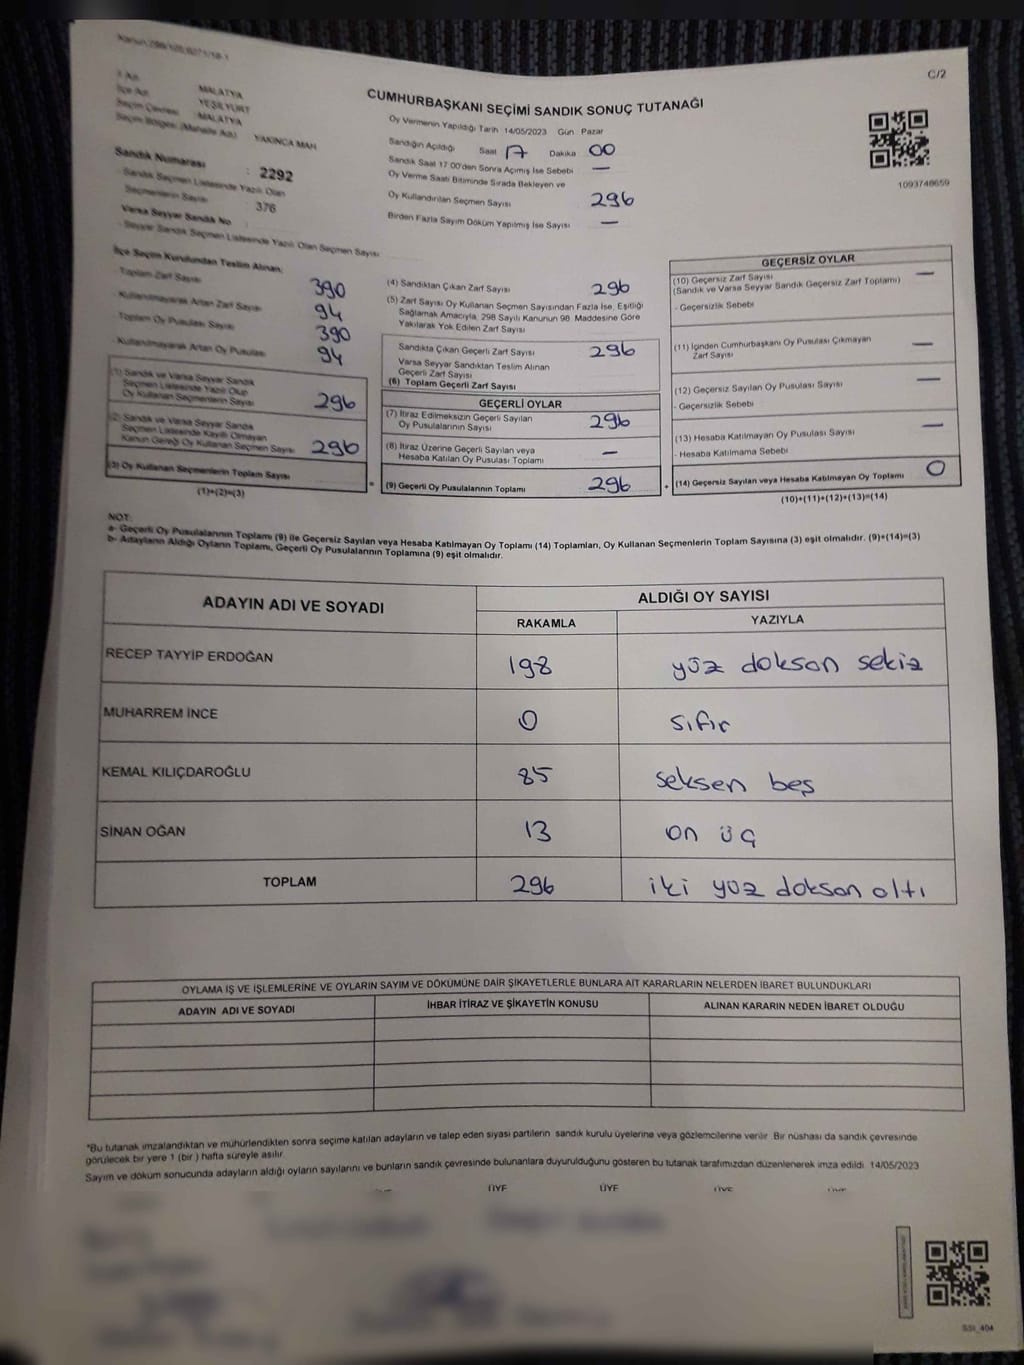 Kanun:298/105,6271/18-1
C/2
CUMHURBAŞKANI SEÇİMİ SANDIK SONUÇ TUTANAĞI
İl Adı MALATYA
İlçe Adı YEŞİLYURT
Seçim Çevresi MALATYA
Seçim Bölgesi (Mahalle Adı) YAKINCA MAH
Sandık Numarası : 2292
- Sandık Seçmen Listesinde Yazılı Olan
Seçmenlerin Sayısı 376
Varsa Seyyar Sandık No :
- Seyyar Sandık Seçmen Listesinde Yazılı Olan Seçmen Sayısı
Oy Vermenin Yapıldığı Tarih 14/05/2023 Gün Pazar
Sandığın Açıldığı Saat 17 Dakika 00
Sandık Saat 17:00'den Sonra Açımış İse Sebebi —
Oy Verme Saati Bitiminde Sırada Bekleyen ve
Oy Kullandırılan Seçmen Sayısı 296
Birden Fazla Sayım Döküm Yapılmış İse Sayısı —
1093748659
İlçe Seçim Kurulundan Teslim Alınan:
- Toplam Zarf Sayısı 390
- Kullanılmayarak Artan Zarf Sayısı 94
- Toplam Oy Pusulası Sayısı 390
- Kullanılmayarak Artan Oy Pusulası 94
(1) Sandık ve Varsa Seyyar Sandık
Seçmen Listesinde Yazılı Olup
Oy Kullanan Seçmenlerin Sayısı 296
(2) Sandık ve Varsa Seyyar Sandık
Seçmen Listesinde Kayıtlı Olmayan
Kanun Gereği Oy Kullanan Seçmen Sayısı 296
(3) Oy Kullanan Seçmenlerin Toplam Sayısı
(1)+(2)=(3)
(4) Sandıktan Çıkan Zarf Sayısı 296
(5) Zarf Sayısı Oy Kullanan Seçmen Sayısından Fazla İse, Eşitliği
Sağlamak Amacıyla, 298 Sayılı Kanunun 98. Maddesine Göre
Yakılarak Yok Edilen Zarf Sayısı
Sandıkta Çıkan Geçerli Zarf Sayısı 296
Varsa Seyyar Sandıktan Teslim Alınan
Geçerli Zarf Sayısı
(6) Toplam Geçerli Zarf Sayısı
GEÇERLİ OYLAR
(7) İtiraz Edilmeksizin Geçerli Sayılan
Oy Pusulalarının Sayısı 296
(8) İtiraz Üzerine Geçerli Sayılan veya
Hesaba Katılan Oy Pusulası Toplamı —
= (9) Geçerli Oy Pusulalarının Toplamı 296 +
GEÇERSİZ OYLAR
(10) Geçersiz Zarf Sayısı —
(Sandık ve Varsa Seyyar Sandık Geçersiz Zarf Toplamı)
- Geçersizlik Sebebi
(11) İçinden Cumhurbaşkanı Oy Pusulası Çıkmayan —
Zarf Sayısı
(12) Geçersiz Sayılan Oy Pusulası Sayısı —
- Geçersizlik Sebebi
(13) Hesaba Katılmayan Oy Pusulası Sayısı —
- Hesaba Katılmama Sebebi
(14) Geçersiz Sayılan veya Hesaba Katılmayan Oy Toplamı 0
(10)+(11)+(12)+(13)=(14)
NOT:
a- Geçerli Oy Pusulalarının Toplamı (9) ile Geçersiz Sayılan veya Hesaba Katılmayan Oy Toplamı (14) Toplamları, Oy Kullanan Seçmenlerin Toplam Sayısına (3) eşit olmalıdır. (9)+(14)=(3)
b- Adayların Aldığı Oyların Toplamı, Geçerli Oy Pusulalarının Toplamına (9) eşit olmalıdır.
ADAYIN ADI VE SOYADI ALDIĞI OY SAYISI
RAKAMLA YAZIYLA
RECEP TAYYİP ERDOĞAN 198 yüz dokson sekiz
MUHARREM İNCE 0 sıfır
KEMAL KILIÇDAROĞLU 85 seksen beş
SİNAN OĞAN 13 on üç
TOPLAM 296 iki yüz dokson altı
OYLAMA İŞ VE İŞLEMLERİNE VE OYLARIN SAYIM VE DÖKÜMÜNE DAİR ŞİKAYETLERLE BUNLARA AİT KARARLARIN NELERDEN İBARET BULUNDUKLARI
ADAYIN ADI VE SOYADI İHBAR İTİRAZ VE ŞİKAYETİN KONUSU ALINAN KARARIN NEDEN İBARET OLDUĞU
"Bu tutanak imzalandıktan ve mühürlendikten sonra seçime katılan adayların ve talep eden siyasi partilerin sandık kurulu üyelerine veya gözlemcilerine verilir. Bir nüshası da sandık çevresinde
görülecek bir yere 1 (bir) hafta süreyle asılır.
Sayım ve döküm sonucunda adayların aldığı oyların sayılarını ve bunların sandık çevresinde bulunanlara duyurulduğunu gösteren bu tutanak tarafımızdan düzenlenerek imza edildi. 14/05/2023
ÜYE ÜYE ÜYE ÜYE
SSI_404